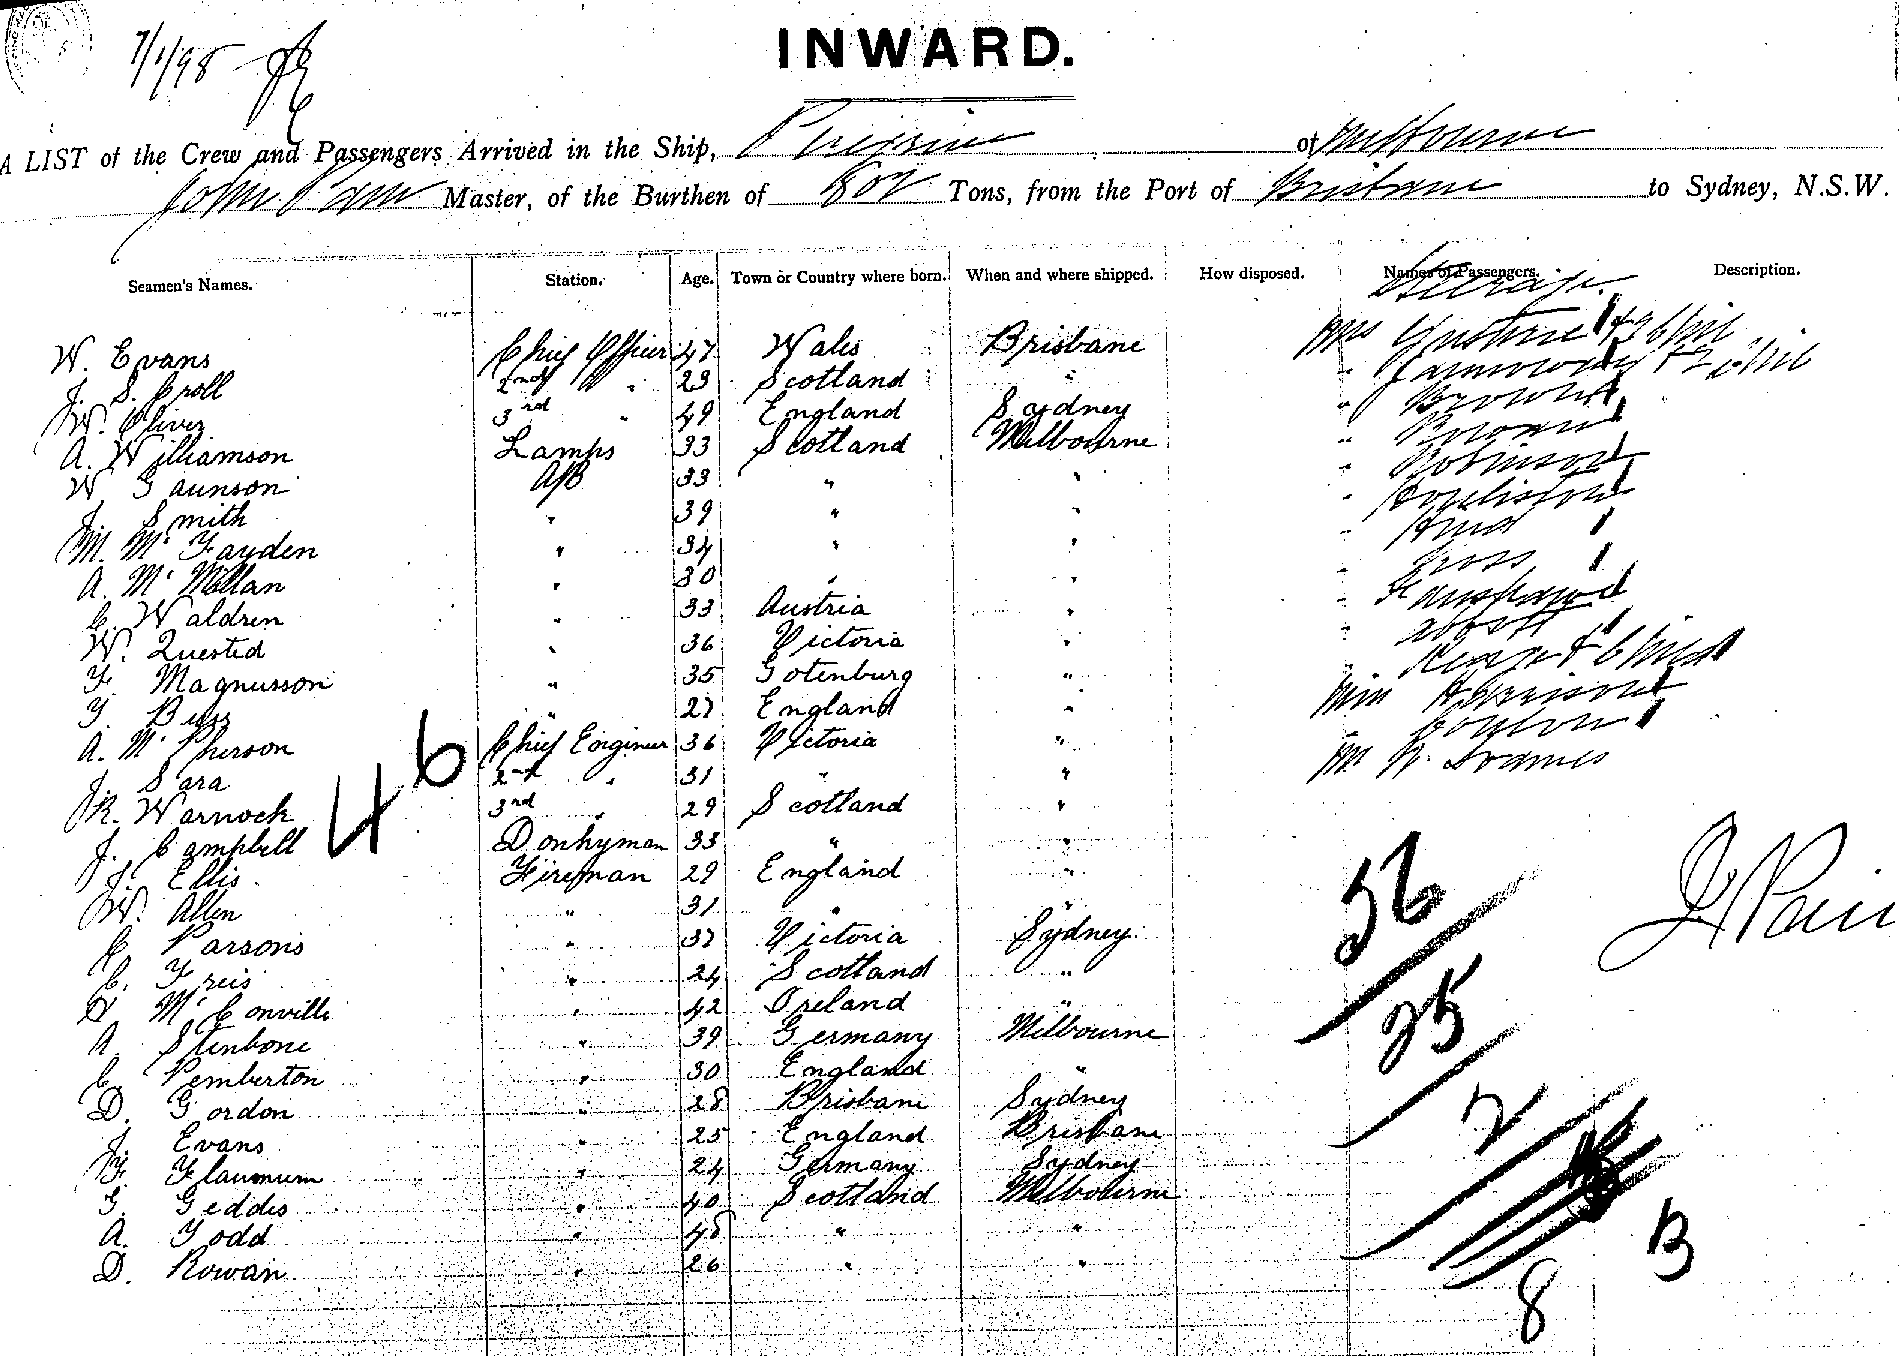 7/1/98
INWARD.
A LIST of the Crew and Passengers Arrived in the Ship, of Melbourne
John Master, of the Burthen of Tons, from the Port of Brisbane to Sydney, N.S.W.
Seamen's Names. Station. Age. Town or Country where born. When and where shipped. How disposed. Names of Passengers. Description.
Steerage.
W. Evans Chief Officer 47 Wales Brisbane Mrs Guthrie & 3 Chil
J. S. Croll 2nd " 23 Scotland " " & 2 Chil
W. Oliver 3rd " 49 England Sydney " Brown
A. Williamson Lamps 33 Scotland Melbourne "
W Gaunson A/B 33 " " " Robinson
J. Smith " 39 " " "
M. McFayden " 34 " " " Hurd
A. McMillan " 30 " " " Gross
C. Waldren " 33 Austria " "
W. Quested " 36 Victoria " " Abbott
F. Magnusson " 35 Gotenburg " " & Child
T. Buss " 27 England " Miss Harrison
A. McPherson Chief Engineer 36 Victoria "
J. Sara 2nd " 31 " " Mr
R. Warnock 3rd " 29 Scotland "
46
J. Campbell Donkyman 33 " "
J. Ellis Fireman 29 England "
W. Allen " 31 " "
G Parsons " 37 Victoria Sydney
C. Freis " 24 Scotland "
McConville " 42 Ireland "
A Stenbone " 39 Germany Melbourne
C. Pemberton " 30 England "
D. Gordon " 28 Brisbane Sydney
J. Evans " 25 England Brisbane
F. Flaumum " 24 Germany Sydney
G. Geddes " 40 Scotland Melbourne
A. Todd " 48 " "
D. Rowan " 26 " "
56
J Pain
35
2
B
8